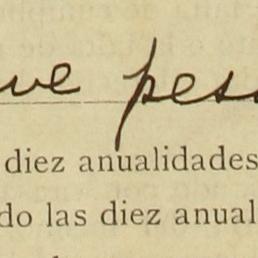 ve pes
diez anualidades
do las diez anual